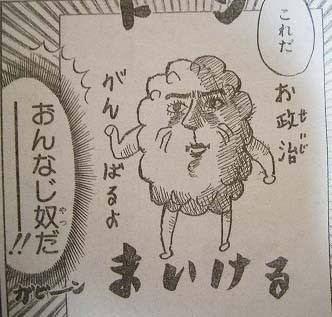 これだ
お政治
せいじ
がんばるよ
まいける
おんなじ奴だ――!!
やつ
ガビーン